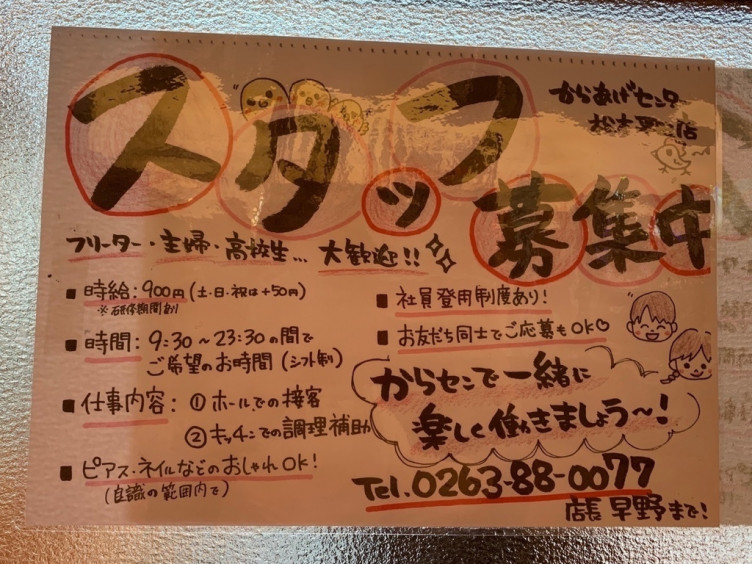 スタッフ
募集中
からあげセンター
松本
店
フリーター・主婦・高校生… 大歓迎!!
■ 時給：900円（土・日・祝は+50円）
※研修期間有り
■ 時間：9:30～23:30の間で
ご希望のお時間（シフト制）
■ 仕事内容：① ホールでの接客
② キッチンでの調理補助
■ ピアス・ネイルなどのおしゃれOK!
（良識の範囲内で）
■ 社員登用制度あり!
■ お友だち同士でご応募もOK♡
からセンで一緒に
楽しく働きましょう～!
Tel. 0263-88-0077
店長 早野まで!